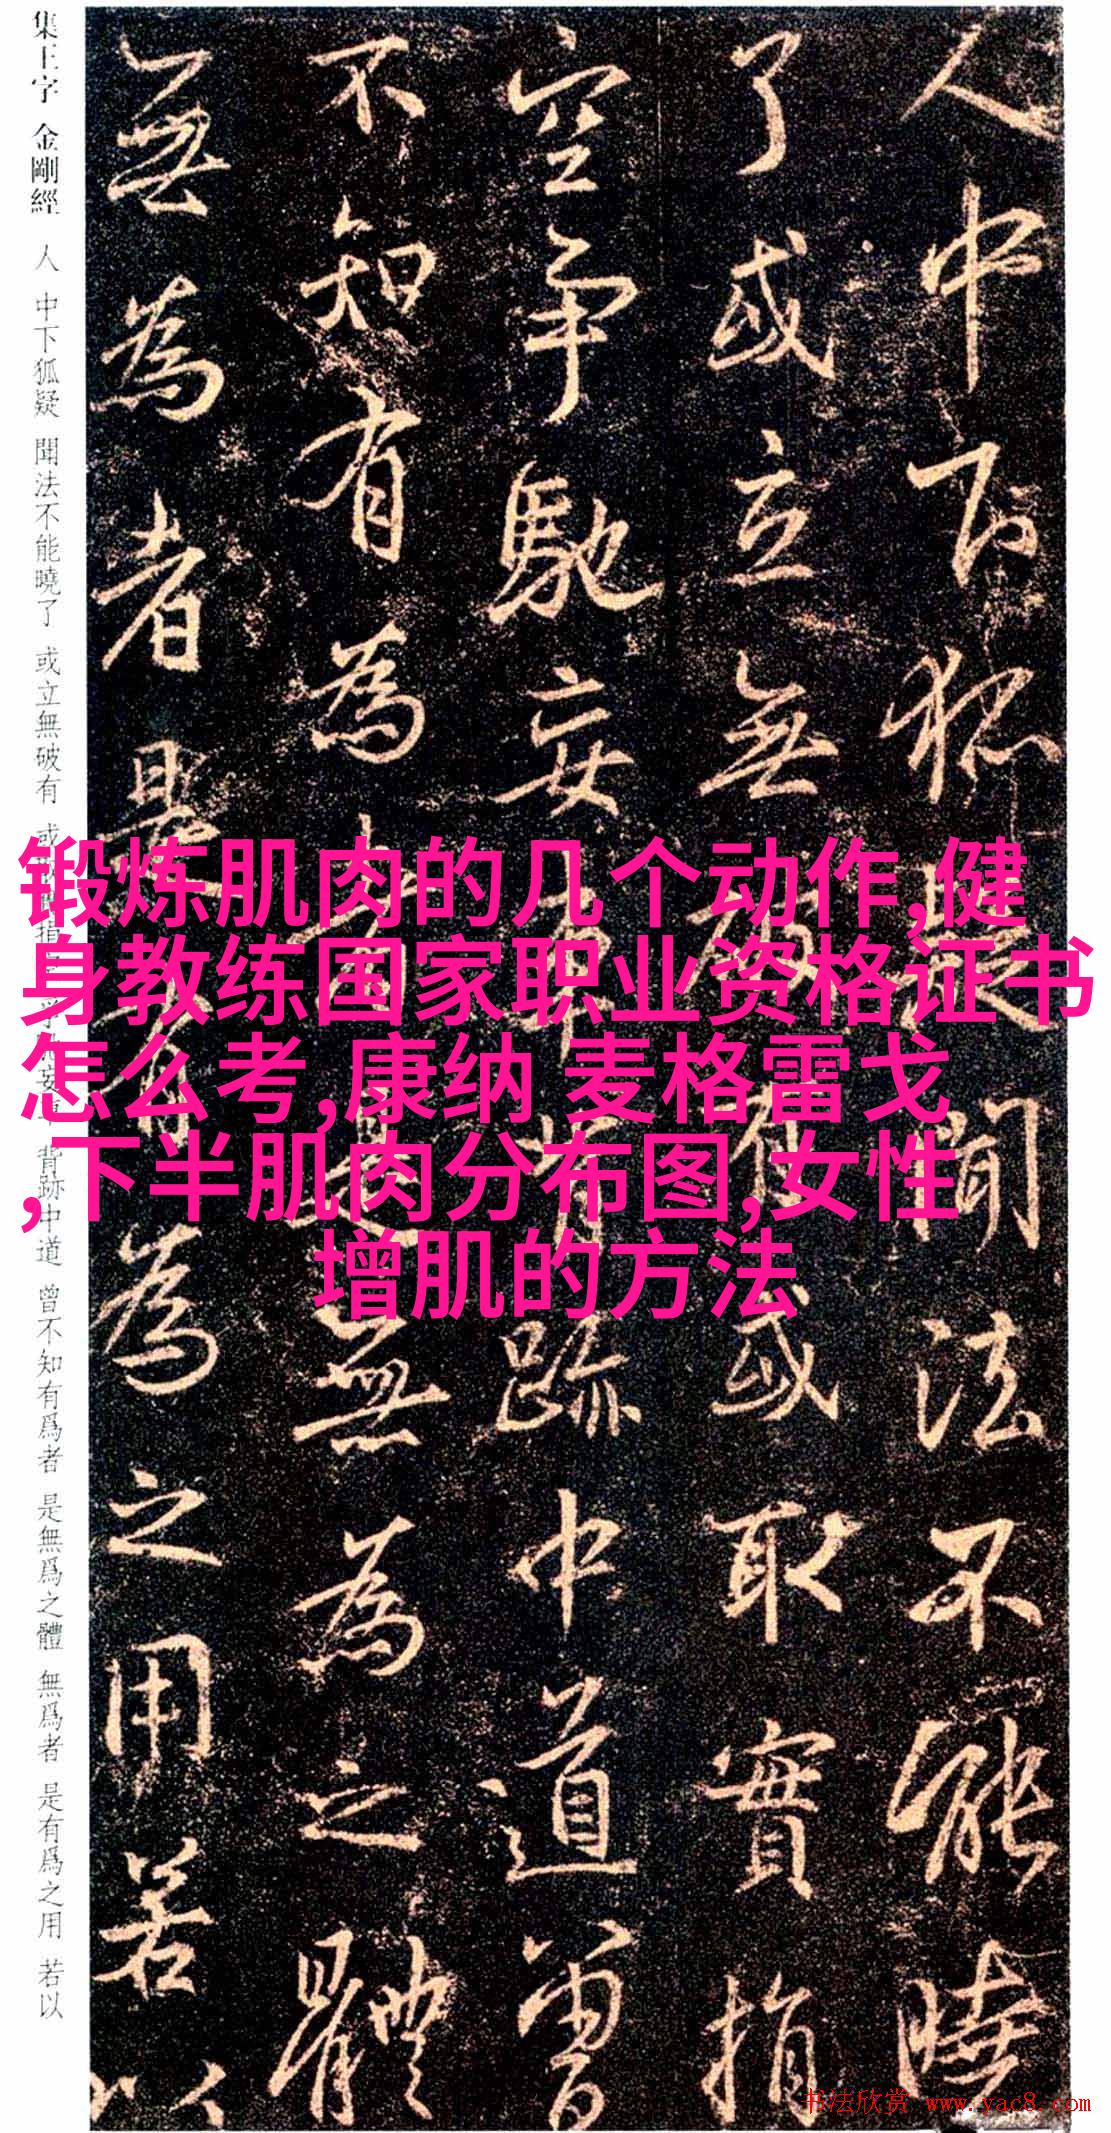 人中下狐疑聞法不能曉
了或立無破有或取實指
空爭馳妄車背跡中道曾
不知有為者是無為之體
無為者是有為之用若以
集王字 金剛經 人 中下狐疑 聞法不能曉了 或立無破有 或取實指空 爭馳妄車 背跡中道 曾不知有爲者 是無爲之體 無爲者 是有爲之用 若以
锻炼肌肉的几个动作,健
身教练国家职业资格证书
怎么考,康纳 麦格雷戈
,下半肌肉分布图,女性
增肌的方法
书法欣赏 www.yac8.com